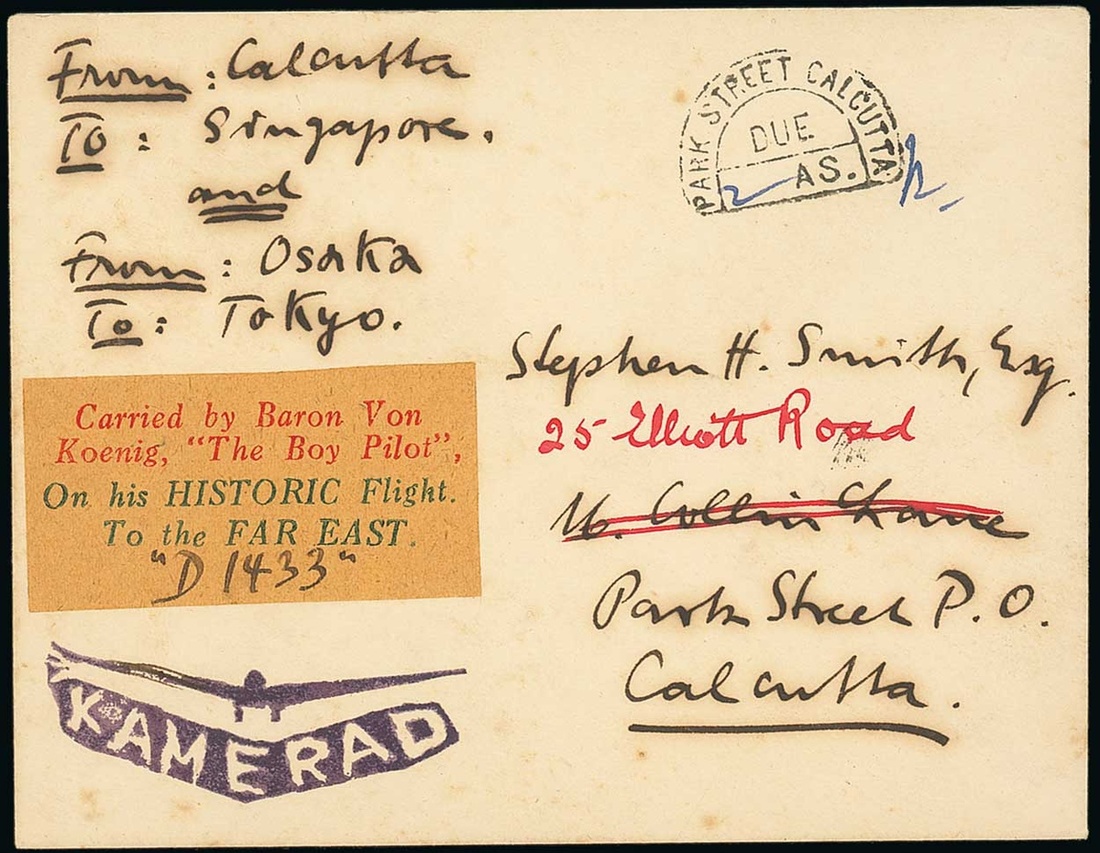 From: Calcutta
To: Singapore.
and
From: Osaka
To: Tokyo.
PARK STREET CALCUTTA
DUE
2 AS.
Stephen H. Smith, Esq.
25 Elliott Road
Collin Lane
Park Street P.O.
Calcutta.
Carried by Baron Von
Koenig, "The Boy Pilot",
On his HISTORIC Flight.
To the FAR EAST.
"D 1433"
KAMERAD